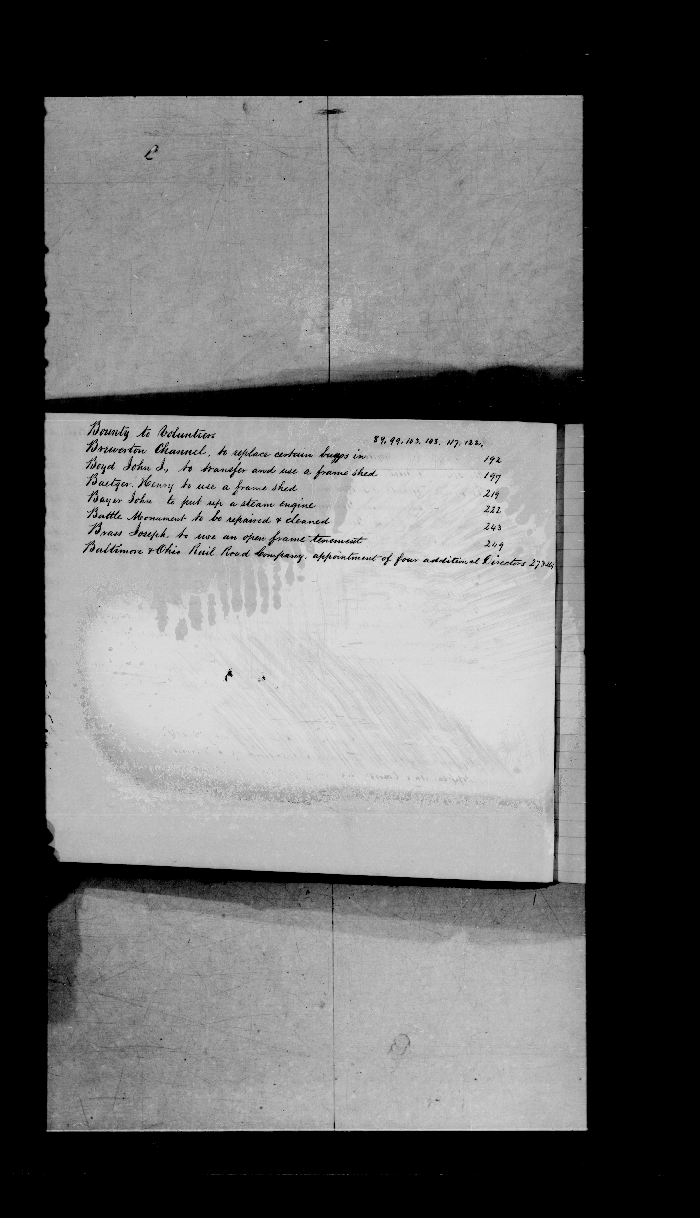 Bounty to Volunteers 89, 99, 103, 108, 117, 122,
Brewerton Channel, to replace certain buoys in 192
Boyd John J, to transfer and use a frame shed 197
Baetzer, Henry to use a frame shed 219
Bayer John to put up a steam engine 222
Battle Monument to be repaired & cleaned 243
Brass Joseph, to use an open frame tenement 249
Baltimore & Ohio Rail Road Company, appointment of four additional Directors